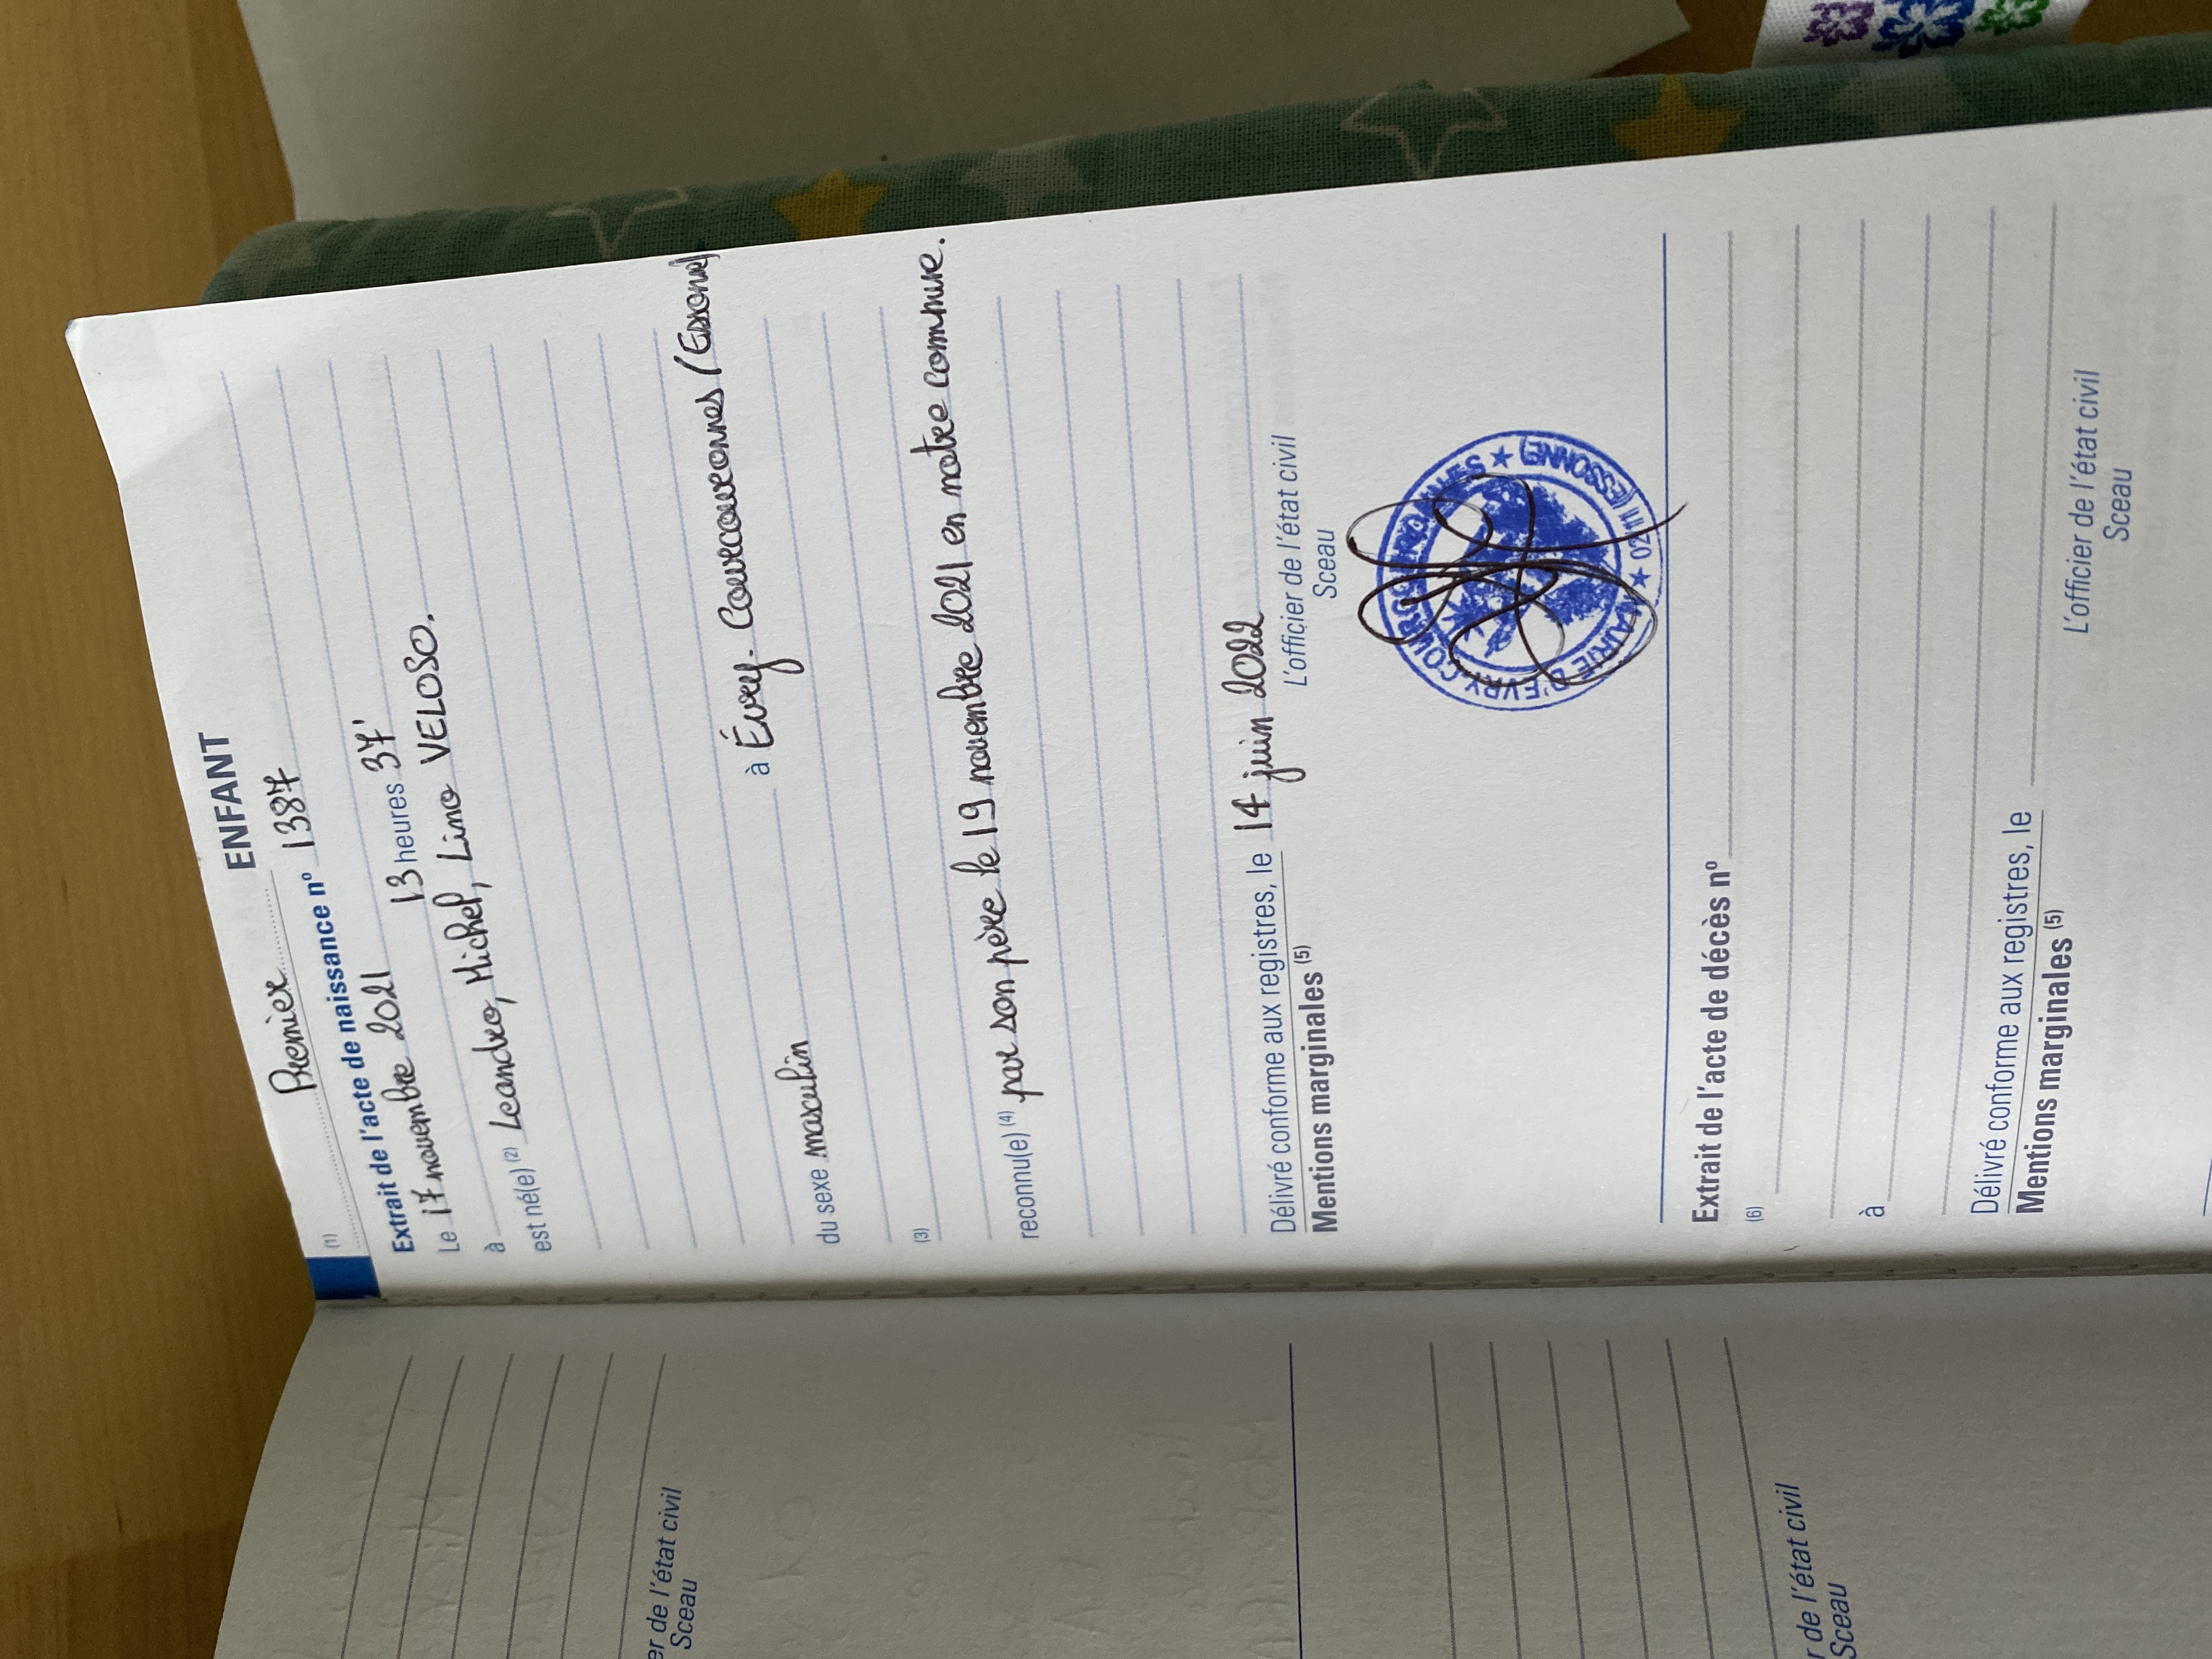 Premier ENFANT
(1)
Extrait de l'acte de naissance nº 1387
Le 17 novembre 2021
à 13 heures 37'
est né(e) (2) Leandro, Michel, Lino VELOSO.
à Évry-Courcouronnes (Essonne)
du sexe masculin
(3)
reconnu(e) (4) par son père le 19 novembre 2021 en notre commune.
Délivré conforme aux registres, le 14 juin 2022
Mentions marginales (5)
L'officier de l'état civil
Sceau
MAIRIE D'EVRY-COURCOURONNES ★ (ESSONNE) ★
Extrait de l'acte de décès nº
(6)
à
Délivré conforme aux registres, le
Mentions marginales (5)
L'officier de l'état civil
Sceau
er de l'état civil
Sceau
r de l'état civil
Sceau